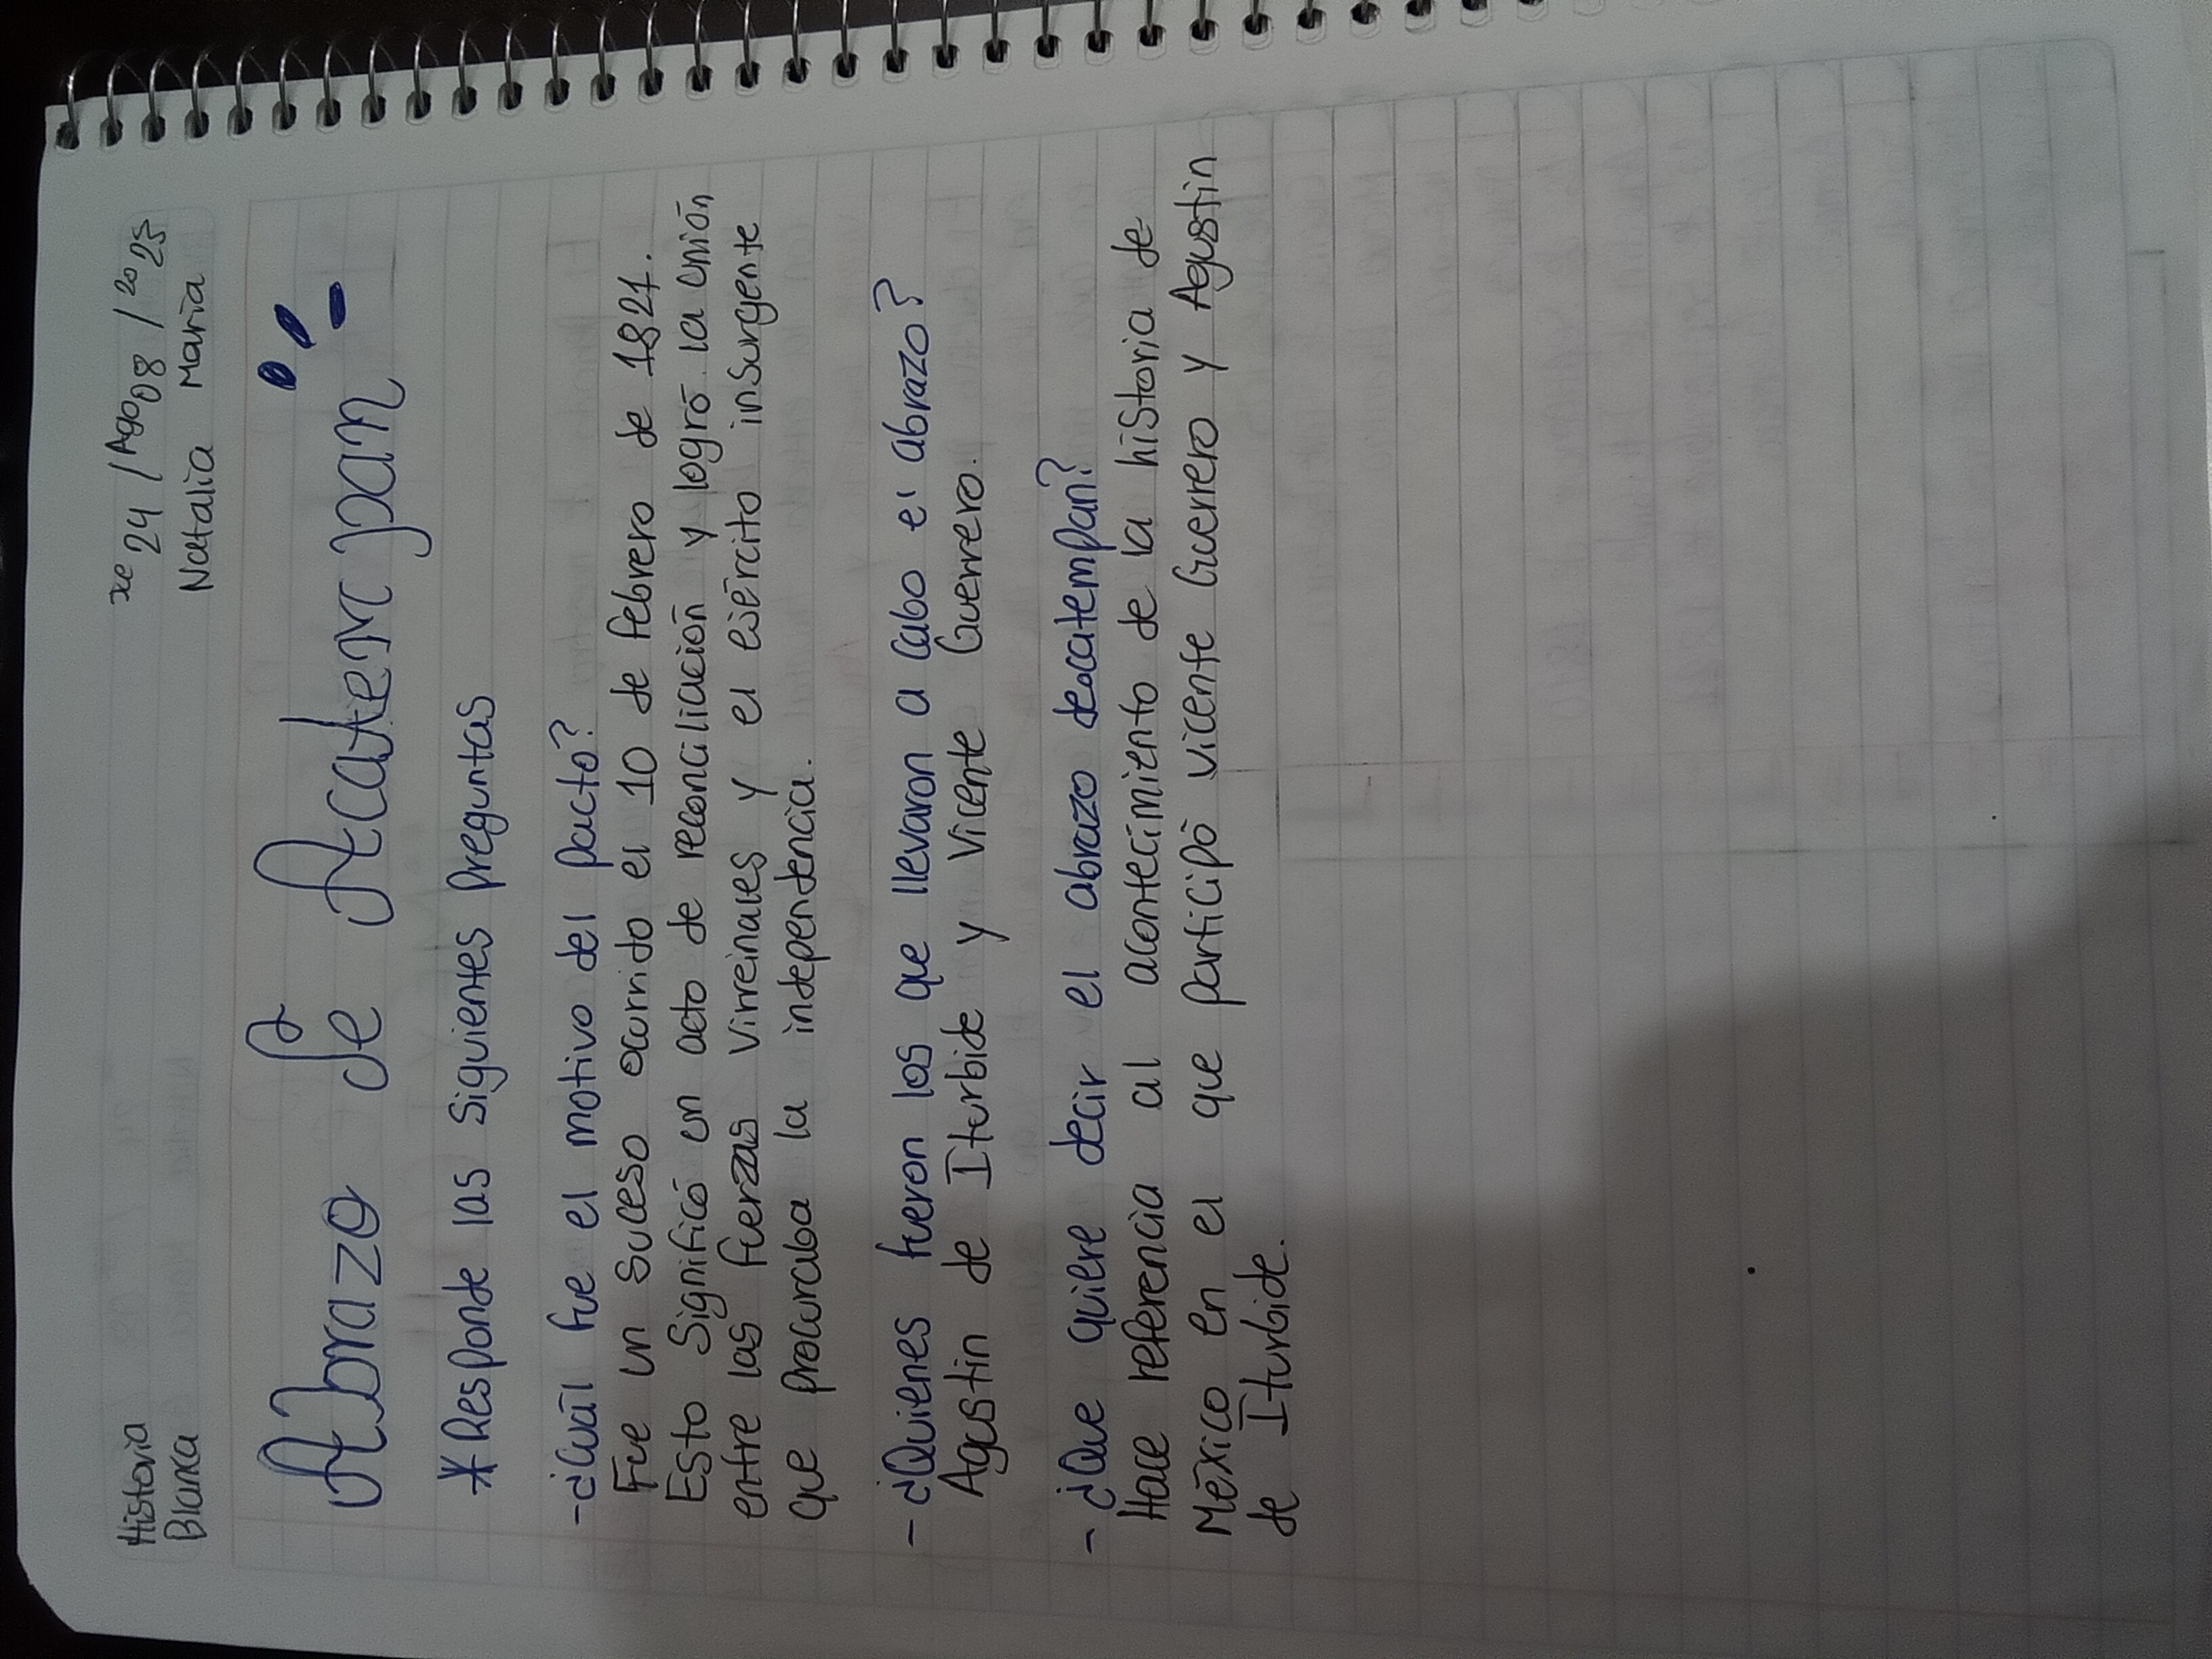 Historia
Blanca
24 / Ago 08 / 2025
Natalia María
Abrazo de Acatempan
* Responde las siguientes preguntas
- ¿Cuál fue el motivo del pacto?
Fue un suceso ocurrido el 10 de febrero de 1821.
Esto significó un acto de reconciliación y logró la unión
entre las fuerzas virreinales y el ejército insurgente
que procuraba la independencia.
- ¿Quienes fueron los que llevaron a cabo el abrazo?
Agustin de Iturbide y Vicente Guerrero.
- ¿Que quiere decir el abrazo de acatempan?
Hace referencia al acontecimiento de la historia de
México en el que participó Vicente Guerrero y Agustin
de Iturbide.